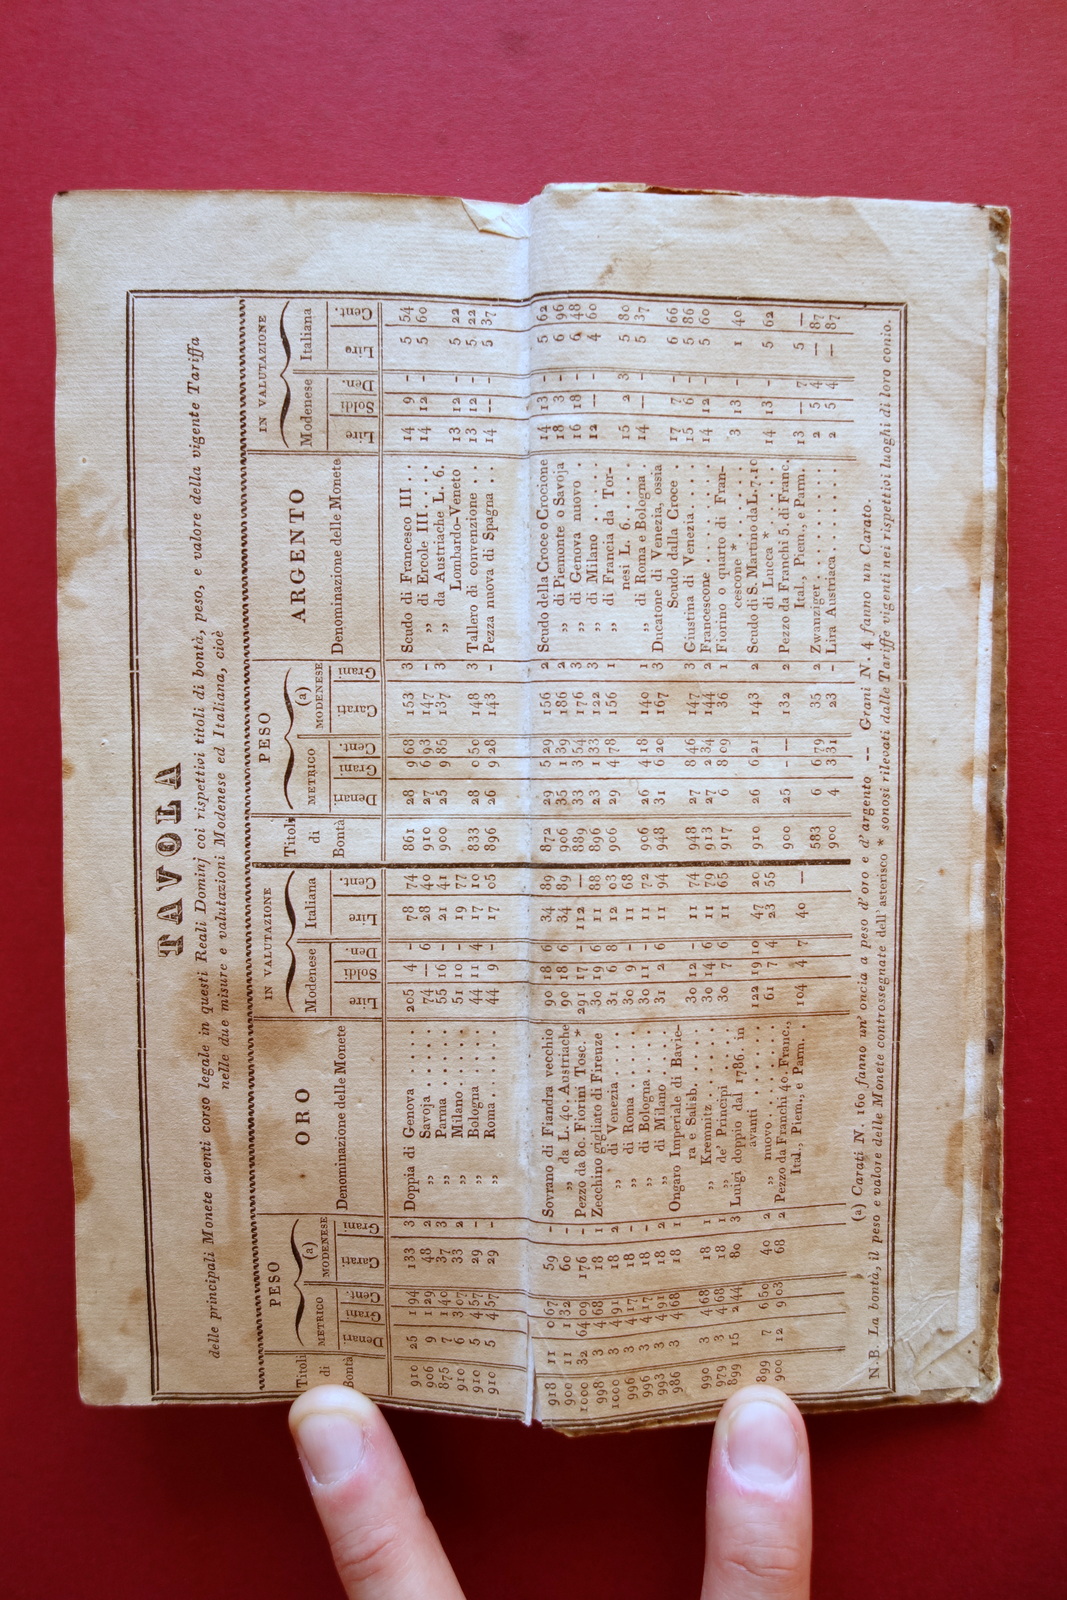 TAVOLA
delle principali Monete aventi corso legale in questi Reali Dominj coi rispettivi titoli di bontà, peso, e valore della vigente Tariffa
nelle due misure e valutazioni Modenese ed Italiana, cioè
Titoli di Bontà
PESO
METRICO
(a) MODENESE
Denari Grani Cent. Carati Grani
ORO
Denominazione delle Monete
IN VALUTAZIONE
Modenese Italiana
Lire Soldi Den. Lire Cent.
910 25 1 94 133 3 Doppia di Genova . . . . 205 4 - 78 74
906 9 1 29 48 2 ,, Savoja . . . . . 74 — 6 28 40
875 7 1 40 37 3 ,, Parma . . . . . 55 16 - 21 41
910 6 3 07 33 2 ,, Milano . . . . . 51 10 - 19 77
910 5 4 57 29 - ,, Bologna . . . . 44 11 4 17 10
910 5 4 57 29 - ,, Roma . . . . . . 44 9 - 17 05
918 11 0 67 59 - Sovrano di Fiandra vecchio 90 18 6 34 89
900 11 1 32 60 - ,, da L. 40. Austriache 90 18 6 34 89
1000 32 6 4 09 176 - Pezzo da 80. Fiorini Tosc. * 291 17 - 112 —
998 3 4 68 18 1 Zecchino gigliato di Firenze 30 19 6 11 88
1000 3 4 91 18 2 ,, di Venezia . . . . 31 6 8 12 03
996 3 4 17 18 - ,, di Roma . . . . . 30 9 - 11 68
996 3 4 17 18 - ,, di Bologna . . . . 30 11 - 11 72
993 3 4 91 18 2 ,, di Milano . . . . 31 2 6 11 94
986 3 4 68 18 1 Ongaro Imperiale di Bavie-
ra e Salisb. . . . . . 30 12 - 11 74
990 3 4 68 18 1 ,, Kremnitz . . . . . 30 14 6 11 79
979 3 4 68 18 1 ,, de' Principi . . . . 30 7 6 11 65
899 15 2 44 80 3 Luigi doppio dal 1786. in
avanti . . . . . . . 122 19 10 47 20
899 7 6 50 40 2 ,, nuovo . . . . . . . 61 7 4 23 55
900 12 9 03 68 2 Pezzo da Franchi 40. Franc.,
Ital., Piem., e Parm. . 104 4 7 40 —
Titoli di Bontà
PESO
METRICO
(a) MODENESE
Denari Grani Cent. Carati Grani
ARGENTO
Denominazione delle Monete
IN VALUTAZIONE
Modenese Italiana
Lire Soldi Den. Lire Cent.
861 28 9 68 153 3 Scudo di Francesco III . . 14 9 - 5 54
910 27 6 93 147 - ,, di Ercole III . . . . . 14 12 - 5 60
900 25 9 86 137 3 ,, da Austriache L. 6.
Lombardo-Veneto 13 12 - 5 22
833 28 0 50 148 3 Tallero di convenzione . . 13 12 - 5 22
896 26 9 28 143 - Pezza nuova di Spagna . . 14 — - 5 37
872 29 5 29 156 2 Scudo della Croce o Crocione 14 13 - 5 62
906 35 1 59 186 2 ,, di Piemonte o Savoja 18 3 - 6 96
889 33 3 54 176 3 ,, di Genova nuovo . . 16 18 - 6 48
896 23 1 33 122 3 ,, di Milano . . . . . . 12 — - 4 60
906 29 4 78 156 1 ,, di Francia da Tor-
nesi L. 6. . . . . . 15 2 3 5 80
906 26 4 18 140 1 ,, di Roma e Bologna . 14 — - 5 37
948 31 6 20 167 3 Ducatone di Venezia, ossia
Scudo dalla Croce . 17 7 - 6 66
948 27 8 46 147 3 Giustina di Venezia. . . . . 15 6 - 5 86
913 27 2 34 144 2 Francescone . . . . . . . 14 12 - 5 60
917 6 8 09 36 1 Fiorino o quarto di Fran-
cescone * . . . . . . 3 13 - 1 40
910 26 6 21 143 2 Scudo di S. Martino da L. 7. 10
di Lucca * . . . . . 14 13 - 5 62
900 25 — — 132 2 Pezzo da Franchi 5. di Franc.
Ital., Piem., e Parm. 13 — 7 5 —
583 6 6 79 35 2 Zwanziger . . . . . . . . 2 5 4 — 87
900 4 3 31 23 - Lira Austriaca . . . . . . 2 5 4 — 87
(a) Carati N. 160 fanno un' oncia a peso d'oro e d'argento --- Grani N. 4 fanno un Carato.
N.B. La bontà, il peso e valore delle Monete controssegnate dell'asterisco * sonosi rilevati dalle Tariffe vigenti nei rispettivi luoghi di loro conio.